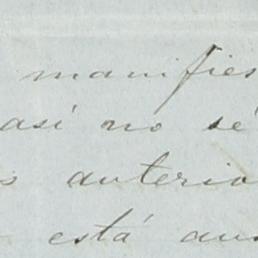 manifies
así no sé
s anterio
está aus